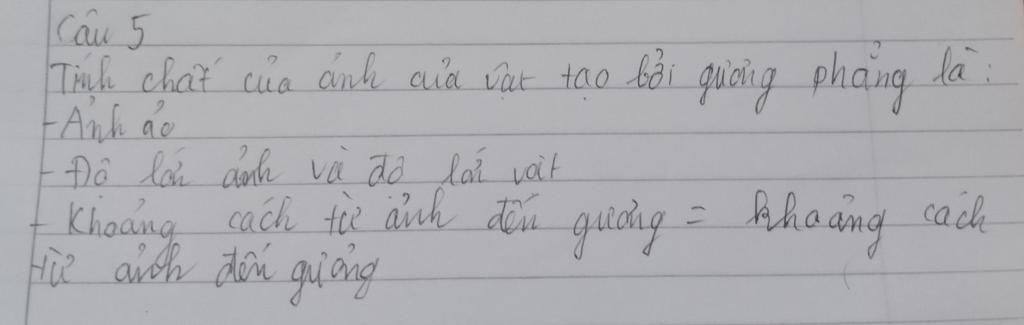 Câu 5
Tính chất của ảnh của vật tạo bởi gương phẳng là:
- Ảnh ảo
- Độ lớn ảnh và độ lớn vật
- Khoảng cách từ ảnh đến gương = khoảng cách
từ ảnh đến gương